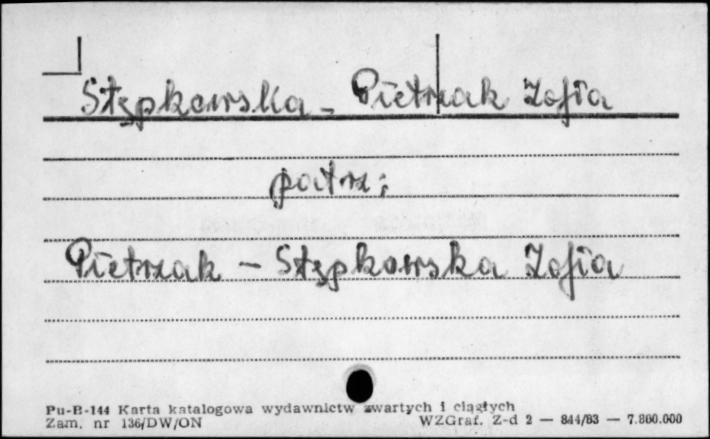 Stępkowska - Pietrzak Zofia
patrz:
Pietrzak - Stępkowska Zofia
Pu-B-144 Karta katalogowa wydawnictw zwartych i ciągłych
Zam. nr 136/DW/ON WZGraf. Z-d 2 — 844/83 — 7.860.000